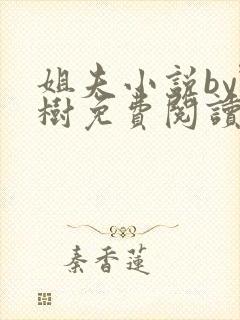 姐夫小说by
樹免費閱讀
秦香蓮